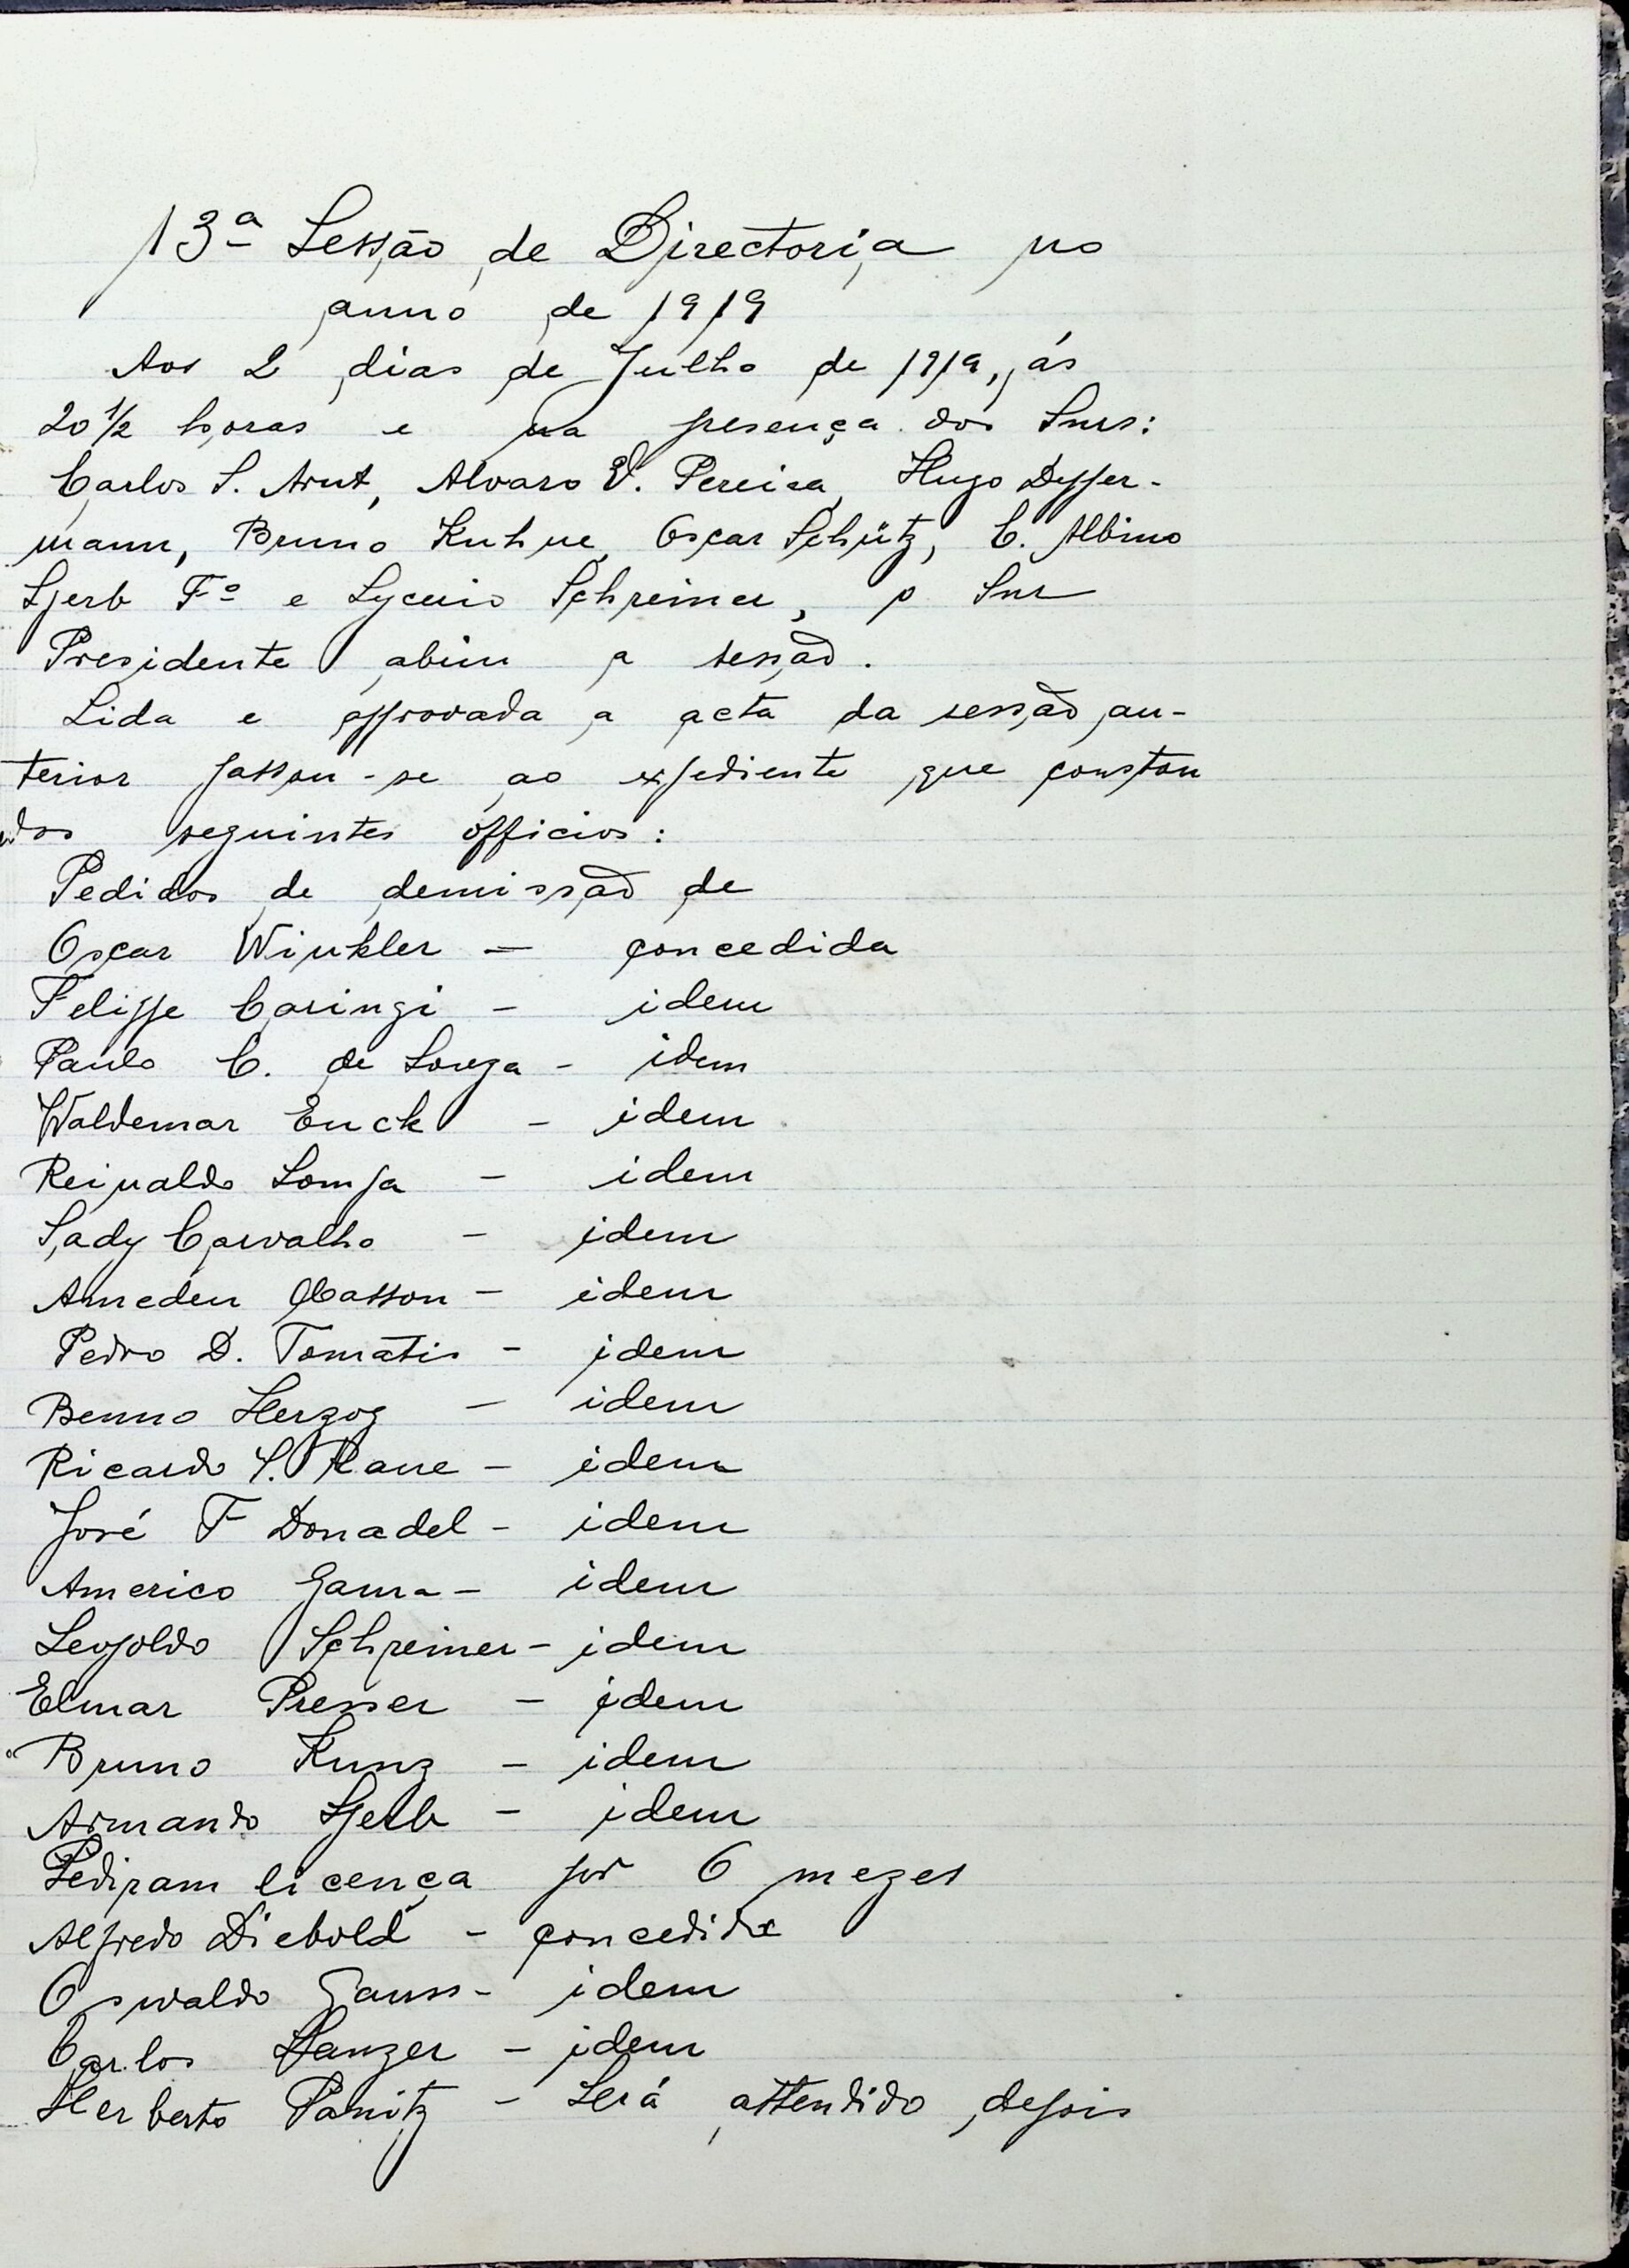 13ª Sessão de Directoria no
anno de 1919
Aos 2 dias de Julho de 1919, ás
20 ½ horas e na presença dos Snrs:
Carlos S. Arnt, Alvaro E. Pereira, Hugo Deppermann,
Bruno Kuhne, Oscar Schütz, C. Albino
Sperb Fº e Lycerio Schreiner, o Snr
Presidente abriu a sessão.
Lida e approvada a acta da sessão an-
terior passou-se ao expediente que constou
dos seguintes officios:
Pedidos de demissão de
Oscar Winkler — concedida
Felippe Caringi - idem
Paulo C. de Souza - idem
Waldemar Enck - idem
Reinaldo Lompa - idem
Sady Carvalho - idem
Amedeu Masson - idem
Pedro D. Tomatis - idem
Benno Herzog - idem
Ricardo S. Kane - idem
José F Donadel - idem
Americo Gama - idem
Leopoldo Schreiner - idem
Elmar Presser - idem
Bruno Kunz - idem
Armando Sperb - idem
Pediram licença por 6 mezes
Alfredo Diebold - concedida
Oswaldo Gauss - idem
Carlos Hanzer - idem
Herberto Panitz - Será attendido depois